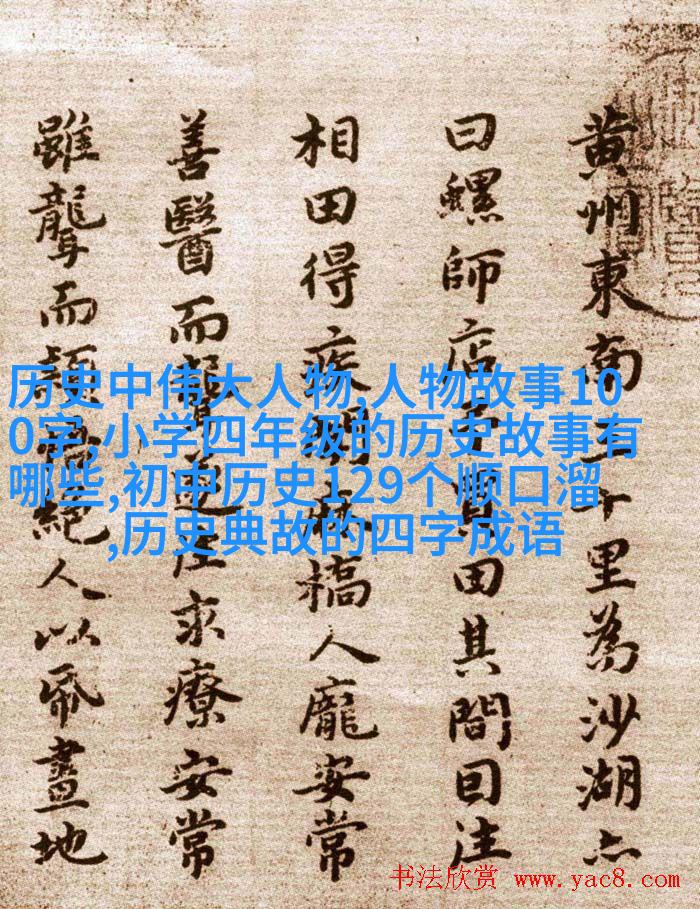 黄州東南三十里為沙湖亦
曰螺師店予買田其間因往
相田得疾聞麻橋人龐安常
善醫而聾遂往求療安常
雖聾而穎絕人以帋畫地
历史中伟大人物,人物故事10
0字,小学四年级的历史故事有
哪些,初中历史129个顺口溜
,历史典故的四字成语
书法欣赏 www.yac8.com